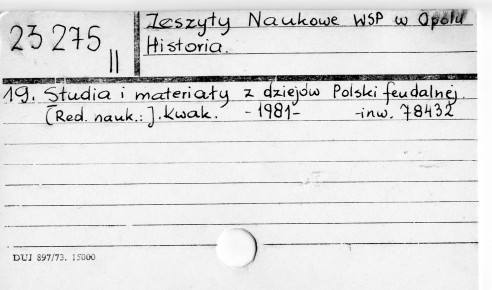 23 275 II
Zeszyty Naukowe WSP w Opolu
Historia.
19. Studia i materiały z dziejów Polski feudalnej.
[Red. nauk.: J. Kwak. -1981- -inw. 78432
DUJ 897/73. 15000